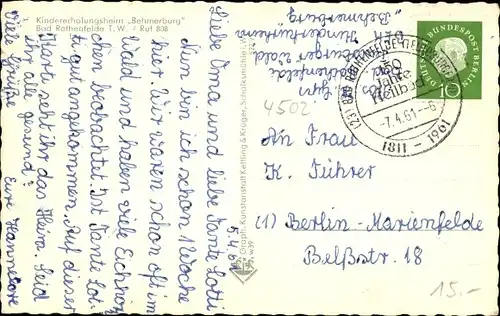 Kindererholungsheim „Behmerburg"
Bad Rothenfelde T. W. / Ruf 808
5.4.61
Liebe Oma und liebe Tante Lotti
Nun bin ich schon 1 Woche
hier. Wir waren schon oft im
Wald und haben viele Eichhörn
chen beobachtet. Ist Tante Lot-
ti gut angekommen. Auf dieser
Karte seht ihr das Heim. Seid
ihr alle gesund?
Viele Grüße
Eure Hannelore
Graph. Kunstanstalt Kettling & Krüger, Schalksmühle i. W.
Rothenfelde
Teutoburger Wald
Kinderkurheim
"Behmerburg"
4502
DEUTSCHE BUNDESPOST BERLIN
10
(23) BAD ROTHENFELDE
150
Jahre
Heilbad
-7.4.61-6
1811 - 1961
An Frau
K. Führer
(1) Berlin-Marienfelde
Belßstr. 18
15.-